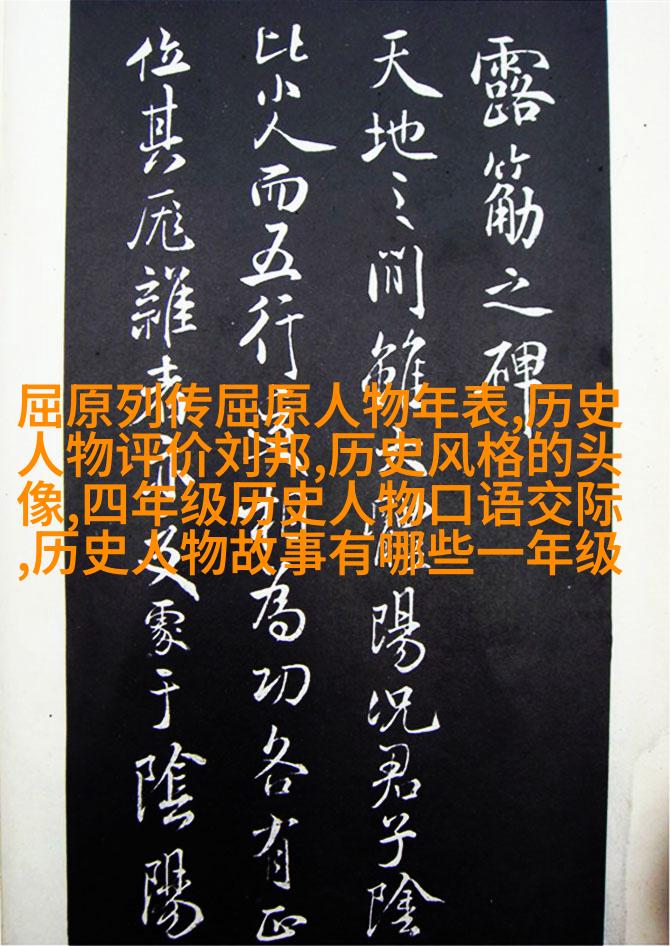 露筋之碑
天地之間雖陽況君子陰
比小人而五行相為功各有正
位其厖雜及于陰陽
屈原列传屈原人物年表,历史
人物评价刘邦,历史风格的头
像,四年级历史人物口语交际
,历史人物故事有哪些一年级